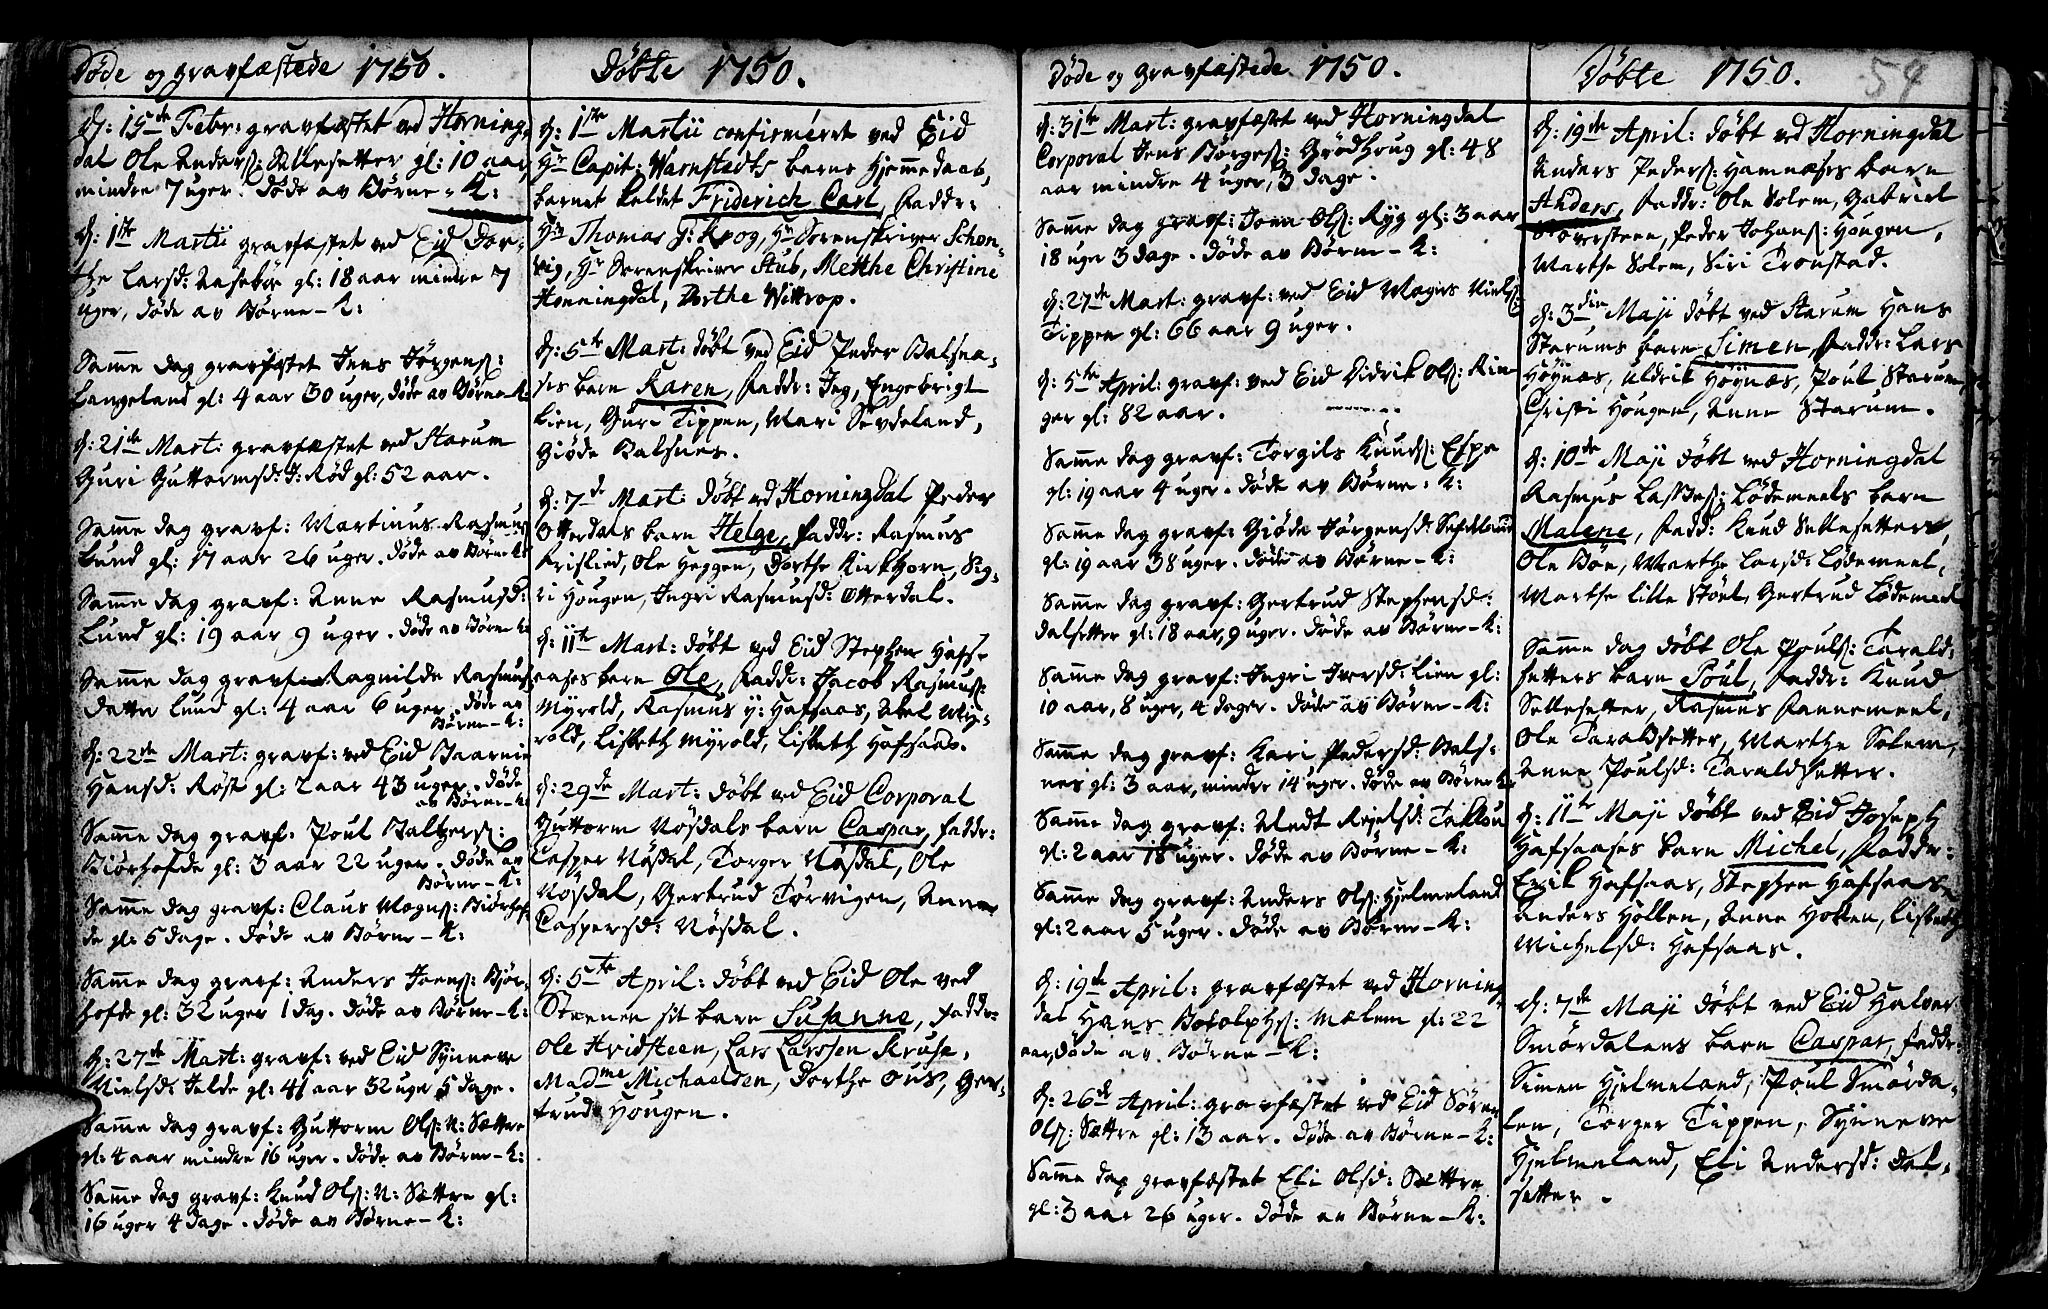 Døde og gravfæstede 1750.
d: 15de Febr: gravfæstet ved Horning,
dal Ole Anders: Sættesetter gl: 10 aar
mindre 7 uger. døde av Børne-K:
d: 1ste Martii gravfæstet ved Eid Dor-
the Larsd: Aasebøe gl: 18 aar mindre 7
uger, døde av Børne-K:
Samme dag gravfæstet Jens Jørgens:
Langeland gl: 4 aar 30 uger, døde av Børne-K:
d: 21de Mart: gravfæstet ved Starum
Guri Guttormsd: J: Rød gl: 52 aar.
Samme dag gravf: Martinus Rasmus
Lund gl: 17 aar 26 uger. døde av Børne-K:
Samme dag gravf: Anne Rasmusd:
Lund gl: 19 aar 9 uger. døde av Børne-K:
Samme dag gravf: Ragnilde Rasmus
datter Lund gl: 4 aar 6 uger. døde av
Børne-K:
d: 22de Mart: gravf: ved Eid Baarnie
Hansd: Røst gl: 2 aar 43 uger. døde
av Børne-K:
Samme dag gravf: Poul Baltzers:
Biørhofde gl: 3 aar 22 uger. døde av
Børne-K:
Samme dag gravf: Claus Mogns: Biørhof
de gl: 5 dage. døde av Børne-K:
Samme dag gravf: Anders Joens: Bjør-
hofde gl: 32 uger 1 dag. døde av Børne-K:
d: 27de Mart: gravf: ved Eid Synneve
Nielsd: Jelde gl: 41 aar 32 uger 5 dage.
Samme dag gravf: Guttorm Ols: N: Sættre
gl: 4 aar mindre 16 uger. døde av Børne-K:
Samme dag gravf: Knud Ols: N: Sættre gl:
16 uger 4 dage. døde av Børne-K:
Døbte 1750.
d: 1ste Martii confirméret ved Eid
Hr Capit: Warnstedts barns hjemmedaab,
barnet keldet Friderich Carl, Faddr:
Hr Thomas J: Krog, Hr Sorenskriver Schon-
vig, Hr Sorenskriver Stub, Metthe Christine
Honningdal, Dorthe Wittrop.
d: 5te Mart: døbt ved Eid Peder Balsna-
ses barn Karen, Faddr: Jeg, Engebrigt
Lien, Guri Tippen, Mari Sevdeland,
Giøde Balsnes.
d: 7de Mart: døbt ved Horningdal Peder
Otterdals barn Helge, Faddr: Rasmus
Kirslied, Ole Heggen, Dorthe Kirkhorn, Sig-
ri Hougen, Ingri Rasmusd: Otterdal.
d: 11te Mart: døbt ved Eid Stephen Hafs-
aases barn Ole, Faddr: Jacob Rasmus:
Myrold, Rasmus y: Hafsaas, Abel My-
rold, Lisbeth Myrold, Lisbeth Hafsaas.
d: 29de Mart: døbt ved Eid Corporal
Guttorm Nøsdals barn Caspar, faddr:
Casper Nøsdal, Torger Nøsdal, Ole
Nøsdal, Gertrud Torvigen, Anne
Caspersd: Nøsdal.
d: 5te April: døbt ved Eid Ole ved
Steenen sit barn Susanne, faddr:
Ole Hvidsteen, Lars Larssen Kruse,
Madme Michaelsen, Dorthe Ous, Ger-
trud Hougen.
Døde og gravfæstede 1750.
d: 31te Mart: gravfæstet ved Horningdal
Corporal Jens Børges: Grødhoug gl: 48
aar mindre 4 uger, 3 dage.
Samme dag gravf: Joen Ols: Ryg gl: 3 aar
18 uger 3 dage. døde av Børne-K:
d: 27de Mart: gravf: ved Eid Mogns Niels:
Tippen gl: 66 aar 9 uger.
d: 5te April: gravf: ved Eid Didrik Ols: Rin
ger gl: 82 aar.
Samme dag gravf: Torgils Knuds: Espe
gl: 19 aar 4 uger. døde av Børne-K:
Samme dag gravf: Giøde Jørgensd: Sefdeland
gl: 19 aar 38 uger. døde av Børne-K:
Samme dag gravf: Gertrud Stephensd:
Dalsetter gl: 18 aar, 9 uger. døde av Børne-K:
Samme dag gravf: Ingri Iversd: Lien gl:
10 aar, 8 uger, 4 dager. døde av Børne-K:
Samme dag gravf: Kari Pedersd: Bals-
nes gl: 3 aar, mindre 14 uger. døde av Børne-K:
Samme dag gravf:
gl: 2 aar 18 uger. døde av Børne-K:
Samme dag gravf: Anders Ols: Hjelmeland
gl: 2 aar 5 uger. døde av Børne-K:
d: 19de April: gravfæstet ved Horning
dal Hans Botolphs: Mælem gl: 22
aar, døde av Børne-K:
d: 26de April: gravfæstet ved Eid Søren
Ols: Sættre gl: 13 aar. døde av Børne-K:
Samme dag gravfæstet Eli Olsd: Sættre
gl: 3 aar 26 uger. døde av Børne-K:
Døbte 1750. 54
d: 19de April: døbt ved Horningdal
Anders Peders: Hamnæses barn
Anders, Faddr: Ole Solem, Gabriel
Stoversteen, Peder Johans: Hougen,
Marthe Solem, Siri Tronstad.
d: 3die Maji døbt ved Starum Hans
Starums barn Simen, Faddr: Lars
Høynæs, Uldrik Høynæs, Poul Starum
Christi Hougen, Anne Starum.
d: 10de Maji døbt ved Horningdal
Rasmus Lasses: Lødemeels barn
Malene, Fadd: Knud Settesetter,
Ole Bøe, Marthe Larsd: Lødemeel,
Marthe lille Støel, Gertrud Lødemeel
Samme dag døbt Ole Pouls: Tarald-
setters barn Poul, Faddr: Knud
Settesetter, Rasmus Kannemeel,
Ole Taraldsetter, Marthe Solem,
Anne Poulsd: Taraldsetter.
d: 11te Maji døbt ved Eid Joseph
Hafsaases barn Michel, Faddr:
Erik Hafsaas, Stephen Hafsaas,
Anders Holten, Anne Holten, Lisbeth
Michelsd: Hafsaas.
d: 7de Maji døbt ved Eid Halver
Smørdalens barn Caspar, faddr:
Simen Hjelmeland, Poul Smørda-
len, Torger Tippen, Synneve
Hjelmeland, Eli Andersd: Dal-
setter.